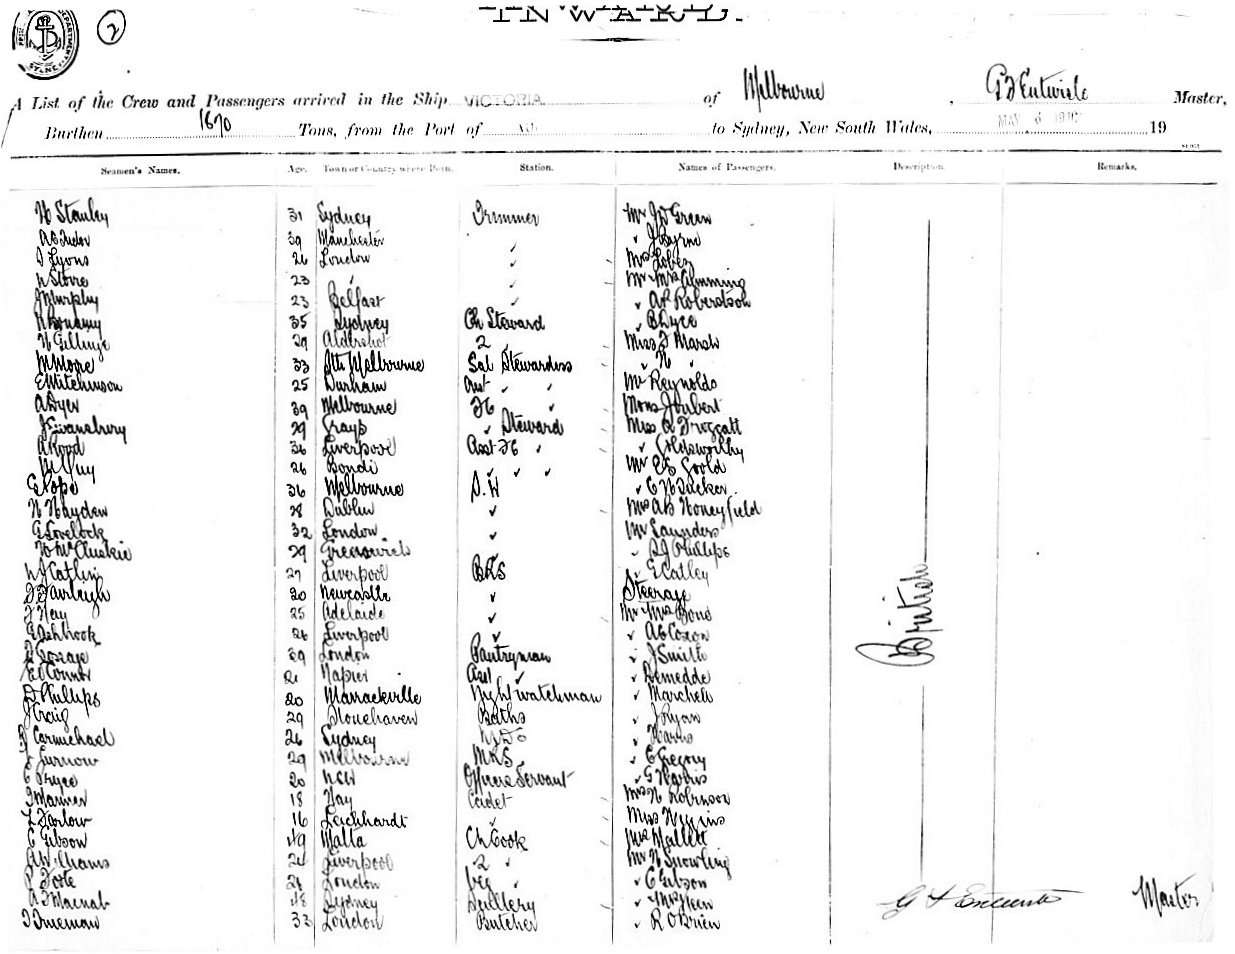 2
INWARD.
A List of the Crew and Passengers arrived in the Ship VICTORIA of Melbourne, G F Entwisle Master,
Burthen 1670 Tons, from the Port of to Sydney, New South Wales, MAY 6 19
Seamen's Names. Age. Town or Country where Born. Station. Names of Passengers. Description. Remarks.
H Stanley 31 Sydney Trimmer Mr J W Green
39 Manchester " " J Byrne
Lyons 26 London " Mrs
W Stone 23 " " Mr & Mrs Cumming
J Murphy 23 Belfast " " A P Robertson
35 Sydney Ch Steward " B Dyce
29 Aldershot 2 " Miss J Marsh
M Moore 33 Sth Melbourne Sal Stewardess " N "
E Mitchinson 25 Durham Asst " " Mr Reynolds
A Dyer 39 Melbourne " Mons Joubert
J Swansbury 29 Grays " Steward Miss A Froggatt
A Rood 36 Liverpool Asst " " Goldsworthy
Guy 26 Bondi " " " Mr E G Goold
G Pope 36 Melbourne S.W " C H Tucker
H Hayden 28 Dublin " Mrs A B Honeyfield
G Lovelock 32 London " Mr Saunders
W McCluskie 29 Greenwich " S J Phillips
W J Catlin 27 Liverpool BRS " E Catley
Fairleigh 20 Newcastle " Steerage
J Hay 25 Adelaide " Mr & Mrs Bond
G Ashbrook 26 Liverpool " " A E Coxon
39 London Pantryman " J Smith
E O'Connor 21 Napier Asst " " Demedde
D Phillips 20 Marrackville Nightwatchman " Marchell
J Craig 29 Stonehaven Baths " J Ryan
J Carmichael 26 Sydney " Harris
J Furnow 29 Melbourne MRS " E Gregory
C Pryce 20 NSW Officers Servant " G Harris
Manner 18 Hay Cadet Mrs H Robinson
L Farlow 16 Leichhardt " Miss Higgins
C Gibson 49 Malta Ch Cook Mrs Mallett
A Williams 24 Liverpool 2 " Mr H Snowling
P Foote 26 London Veg " " C Gibson
A J Macnab 48 Sydney Scullery "
J Trueman 33 London Butcher " R O'Brien
British
G F Entwisle Master